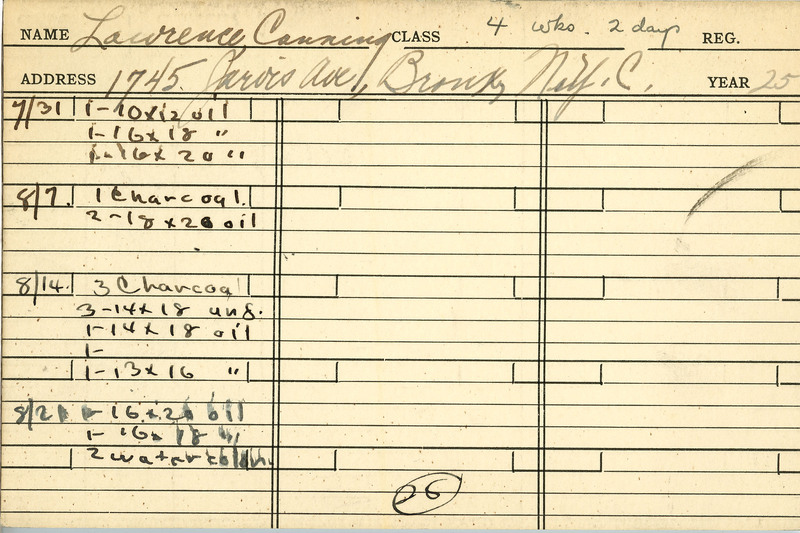 NAME Lawrence Canning CLASS 4 wks. 2 days REG.
ADDRESS 1745 Jarvis Ave, Bronx N.Y.C. YEAR 25
7/31 1-10x12 oil
1-16x18 "
1-16x20 "
8/7. 1 Charcoal.
2-18x20 oil
8/14. 3 Charcoal
3-14x18 unf.
1-14x18 oil
1-
1-13x16 "
8/21 1-16x20 oil
1-16x18 "
2 water colors
26